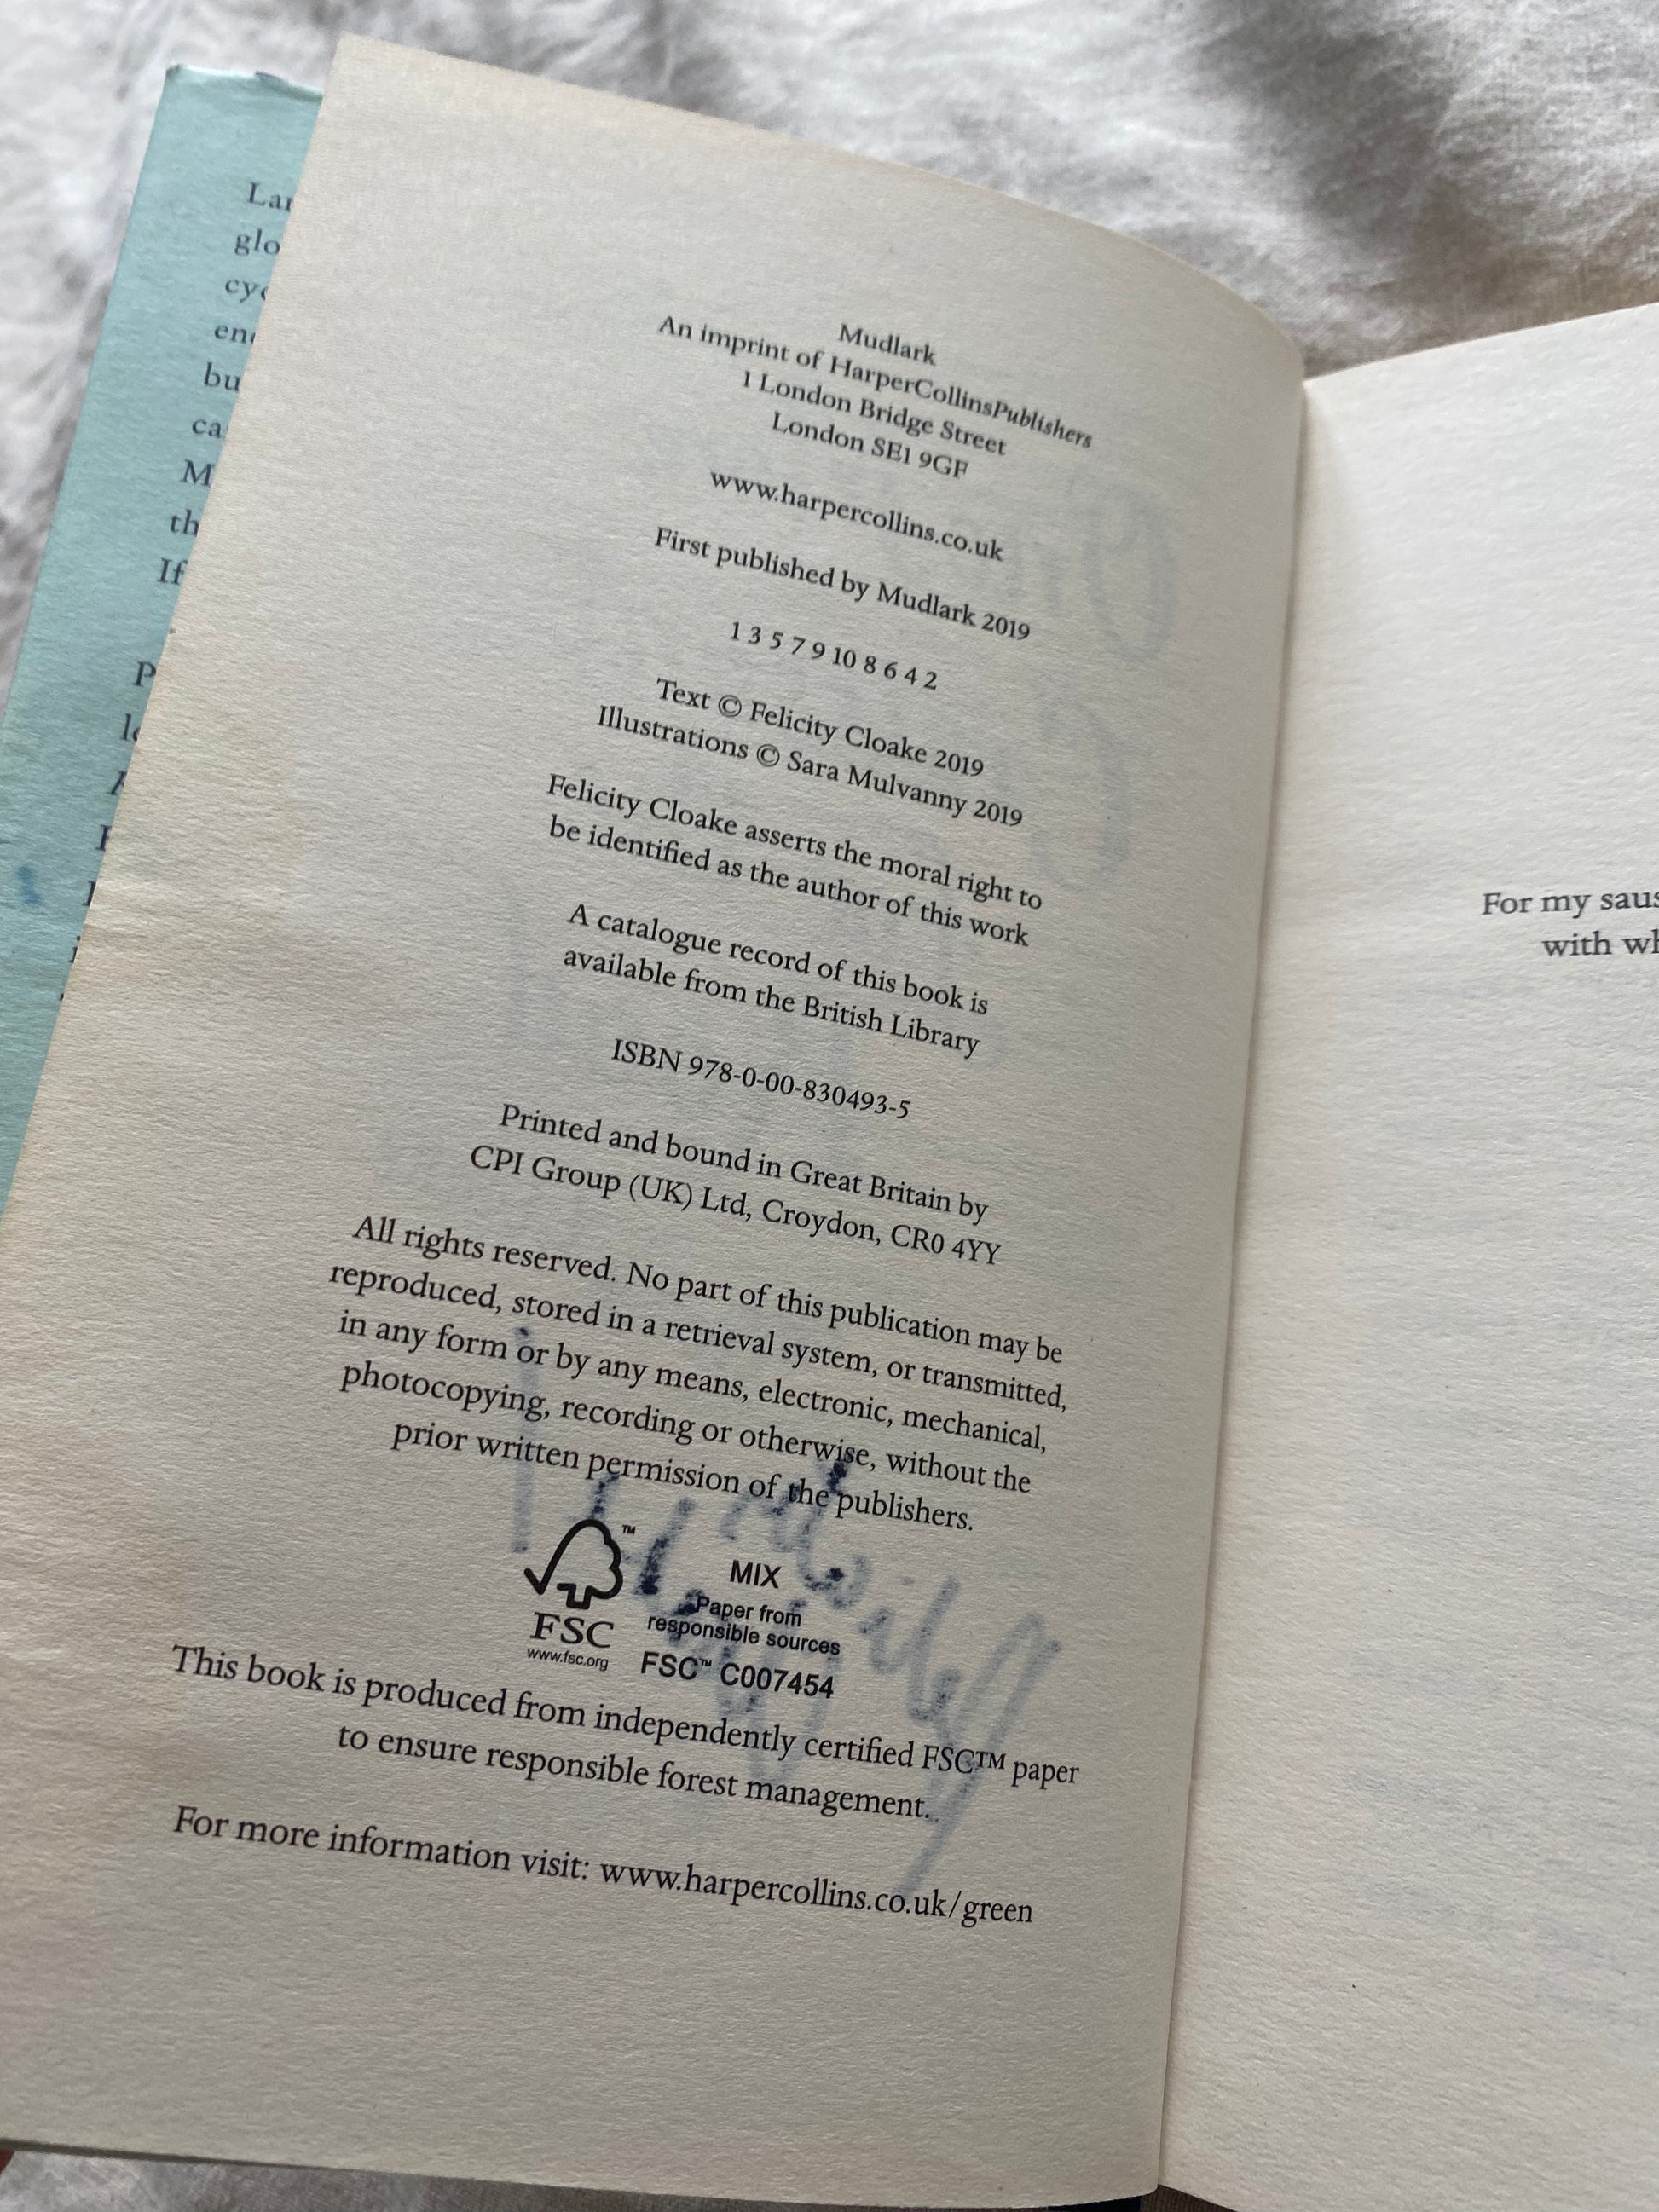 Lar
glo
cyc
enc
bu
ca
M
th
If
P
Mudlark
An imprint of HarperCollinsPublishers
1 London Bridge Street
London SE1 9GF
www.harpercollins.co.uk
First published by Mudlark 2019
1 3 5 7 9 10 8 6 4 2
Text © Felicity Cloake 2019
Illustrations © Sara Mulvanny 2019
Felicity Cloake asserts the moral right to
be identified as the author of this work
A catalogue record of this book is
available from the British Library
ISBN 978-0-00-830493-5
Printed and bound in Great Britain by
CPI Group (UK) Ltd, Croydon, CR0 4YY
All rights reserved. No part of this publication may be
reproduced, stored in a retrieval system, or transmitted,
in any form or by any means, electronic, mechanical,
photocopying, recording or otherwise, without the
prior written permission of the publishers.
™
FSC
www.fsc.org
MIX
Paper from
responsible sources
FSC™ C007454
This book is produced from independently certified FSC™ paper
to ensure responsible forest management.
For more information visit: www.harpercollins.co.uk/green
For my saus
with wh